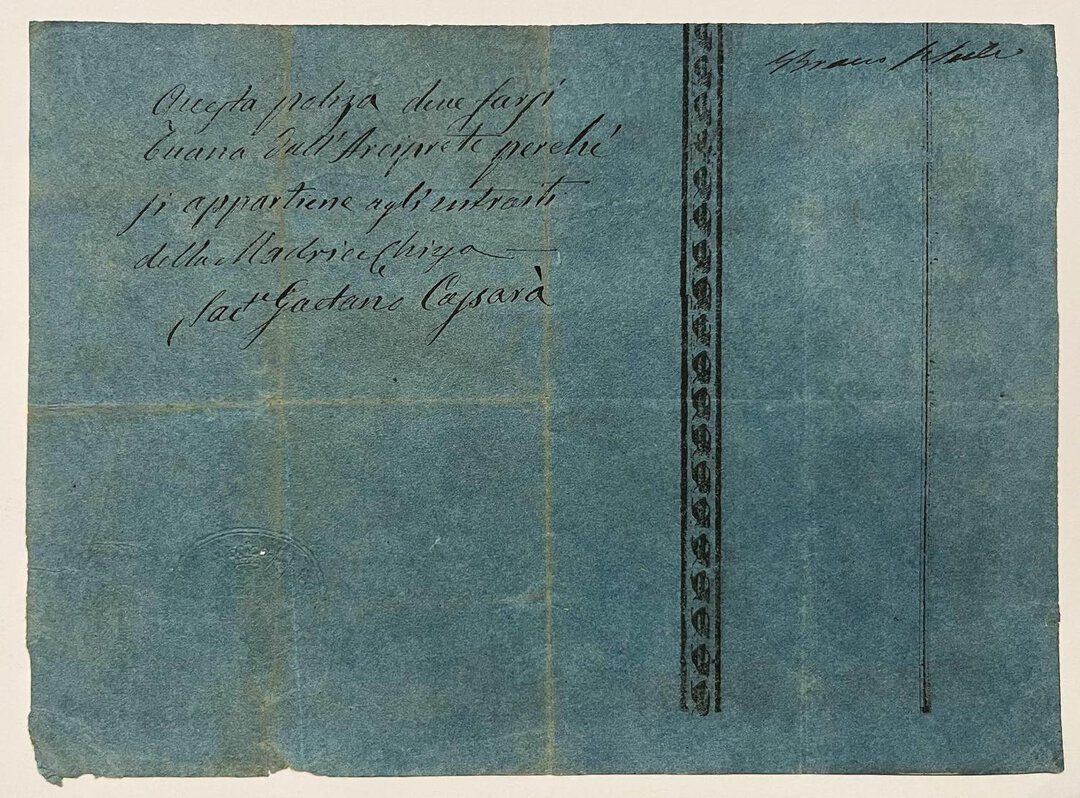 Questa poliza deve farsi
buana dall'Arciprete perché
si appartiene agli introiti
della Madrice Chiesa
Sac.e Gaetano Cassarà